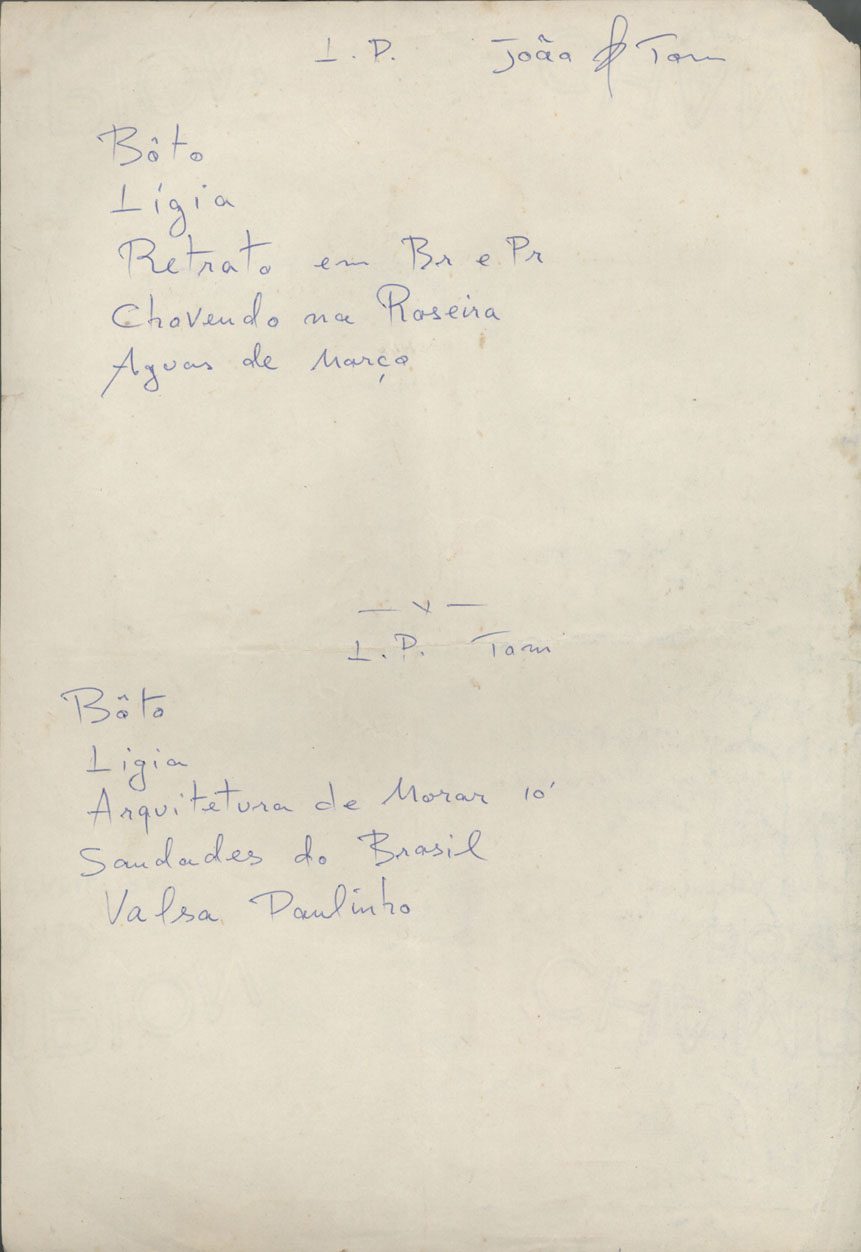 L.P. João & Tom
Bôto
Lígia
Retrato em Br e Pr
Chovendo na Roseira
Aguas de Março
— x —
L.P. Tom
Bôto
Ligia
Arquitetura de Morar 10'
Saudades do Brasil
Valsa Paulinho